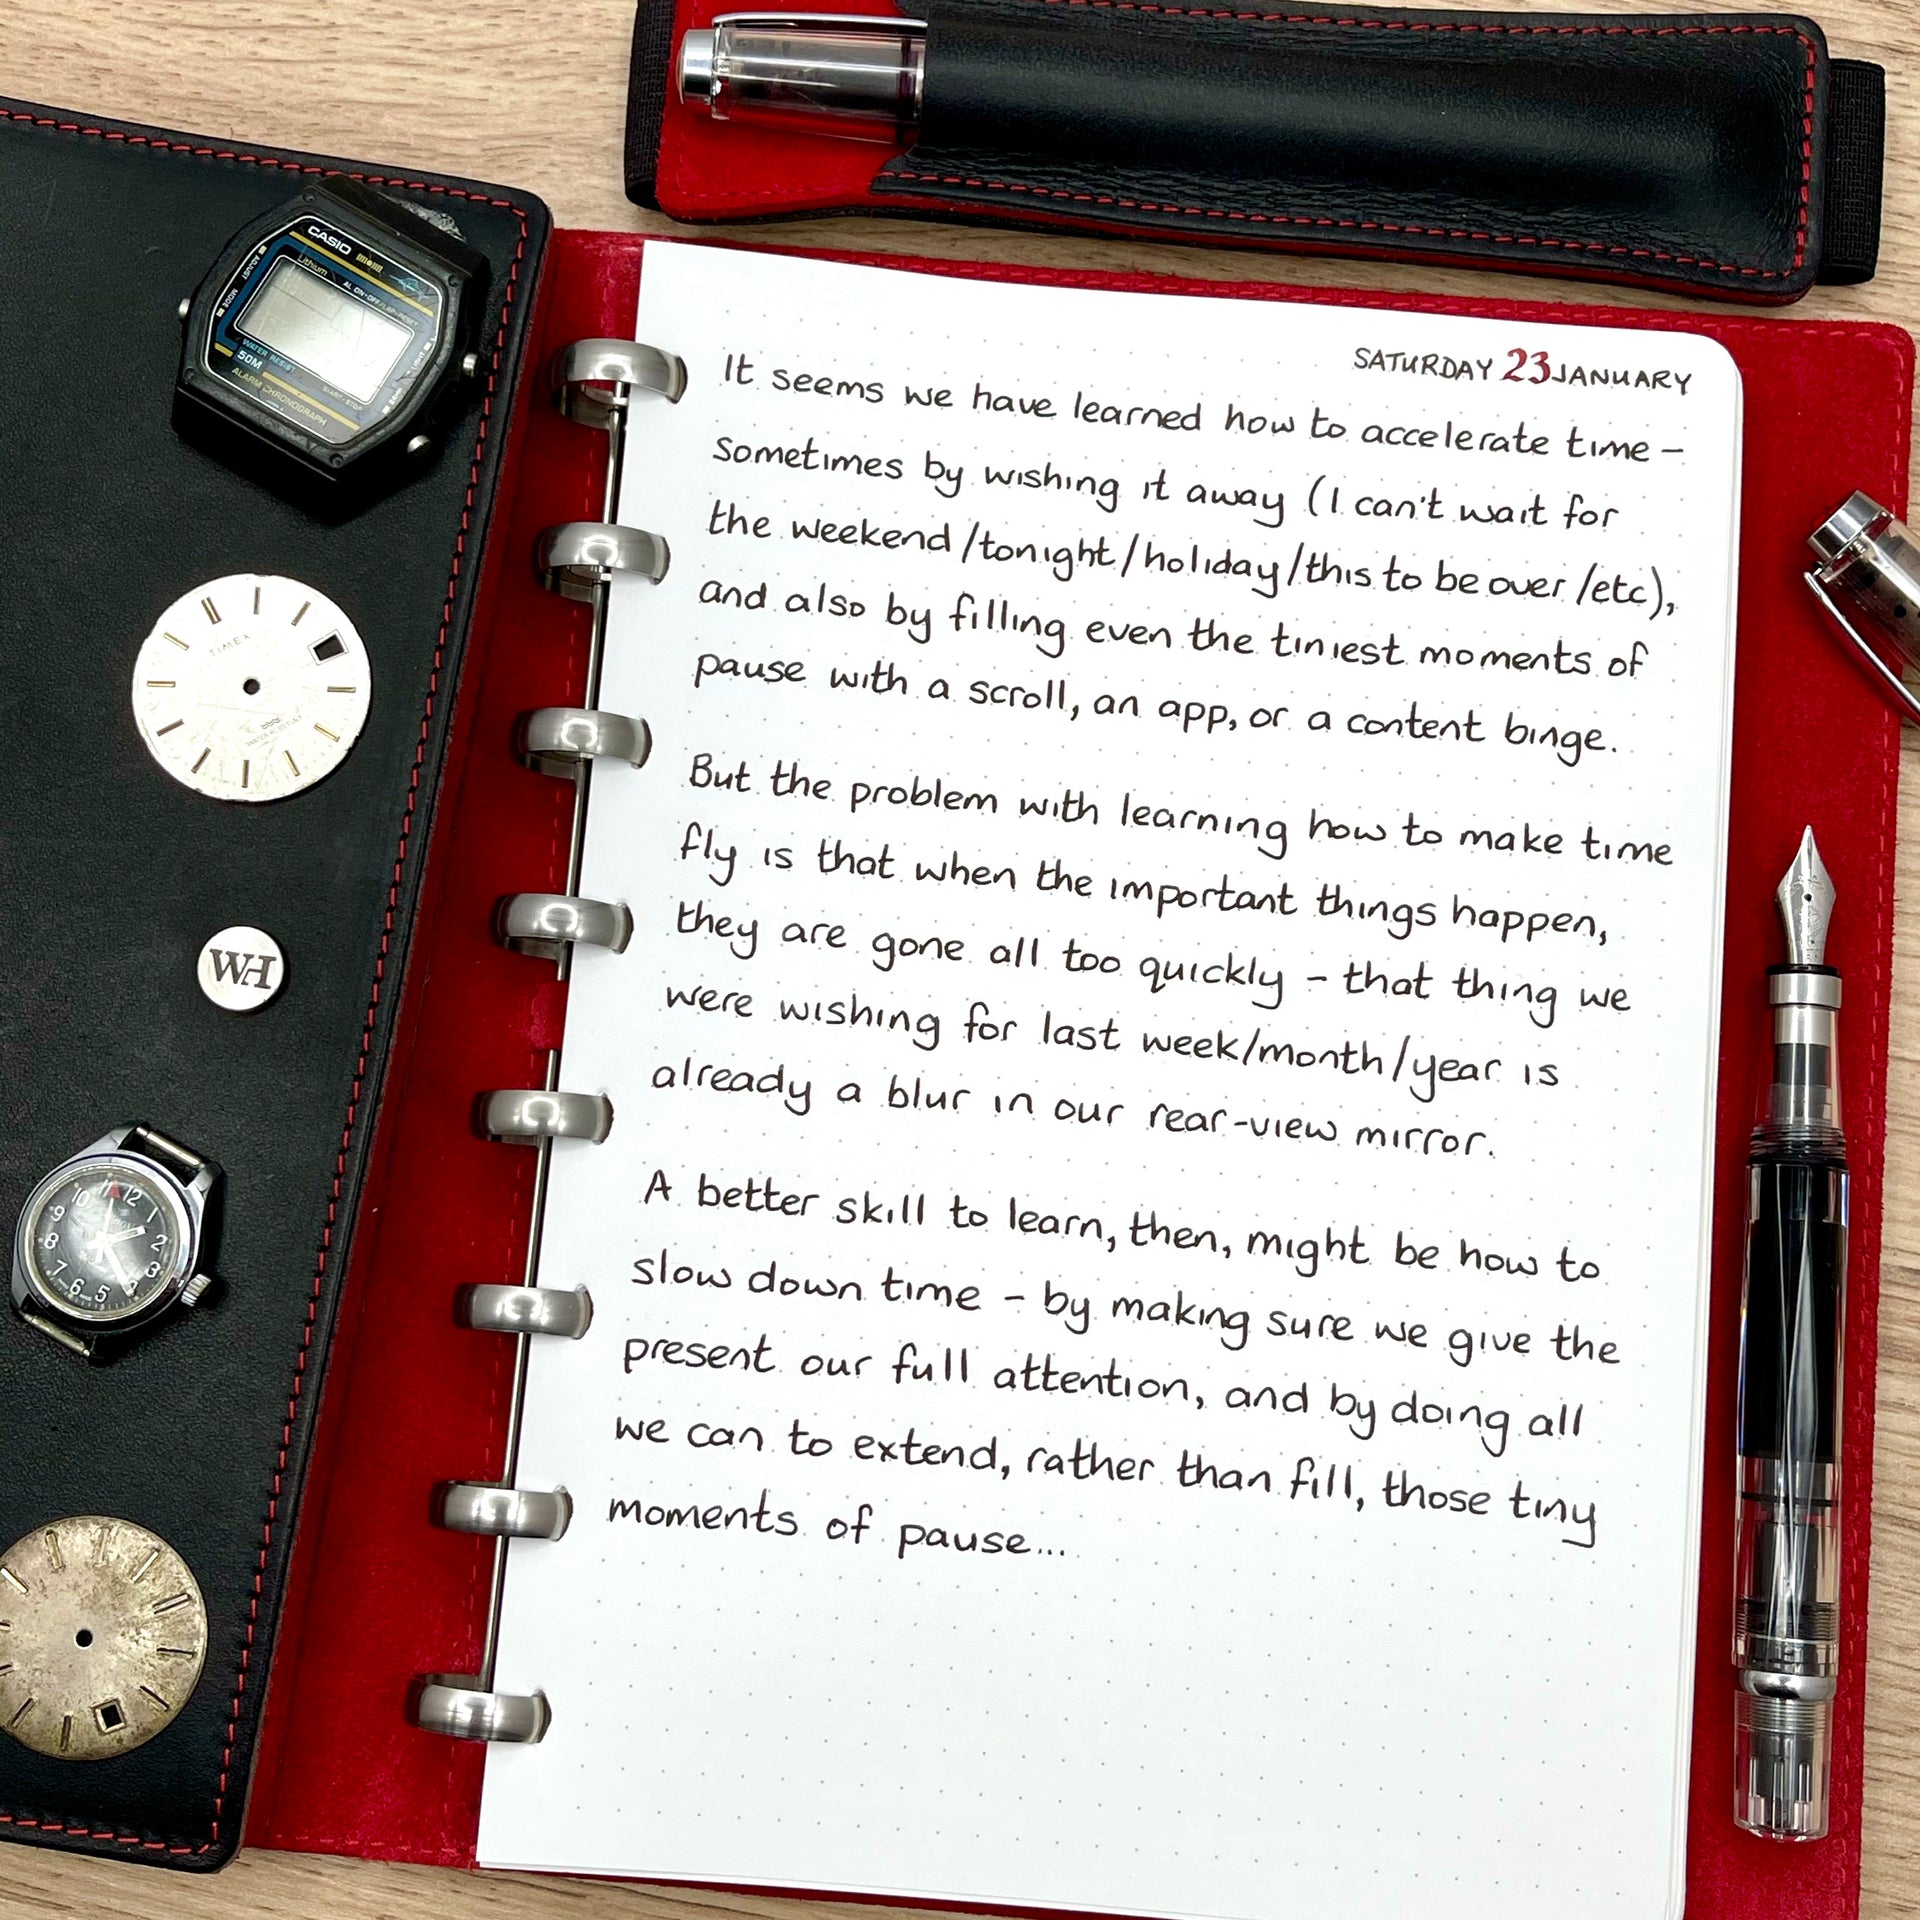 SATURDAY 23 JANUARY
It seems we have learned how to accelerate time –
sometimes by wishing it away (I can't wait for
the weekend/tonight/holiday/this to be over/etc),
and also by filling even the tiniest moments of
pause with a scroll, an app, or a content binge.
But the problem with learning how to make time
fly is that when the important things happen,
they are gone all too quickly – that thing we
were wishing for last week/month/year is
already a blur in our rear-view mirror.
A better skill to learn, then, might be how to
slow down time – by making sure we give the
present our full attention, and by doing all
we can to extend, rather than fill, those tiny
moments of pause...
CASIO
Lithium
AL ON·OFF/LAP·RESET
ADJUST
MODE
LIGHT
24HR
WATER RESIST
50M
START·STOP
ALARM CHRONOGRAPH
TIMEX
WATER RESISTANT
WH
10 12 1
9 2
8 3
7 6 5